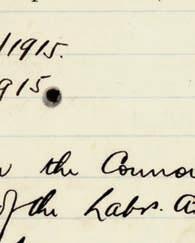 /1915.
1915
the Connor
of the Labr. A